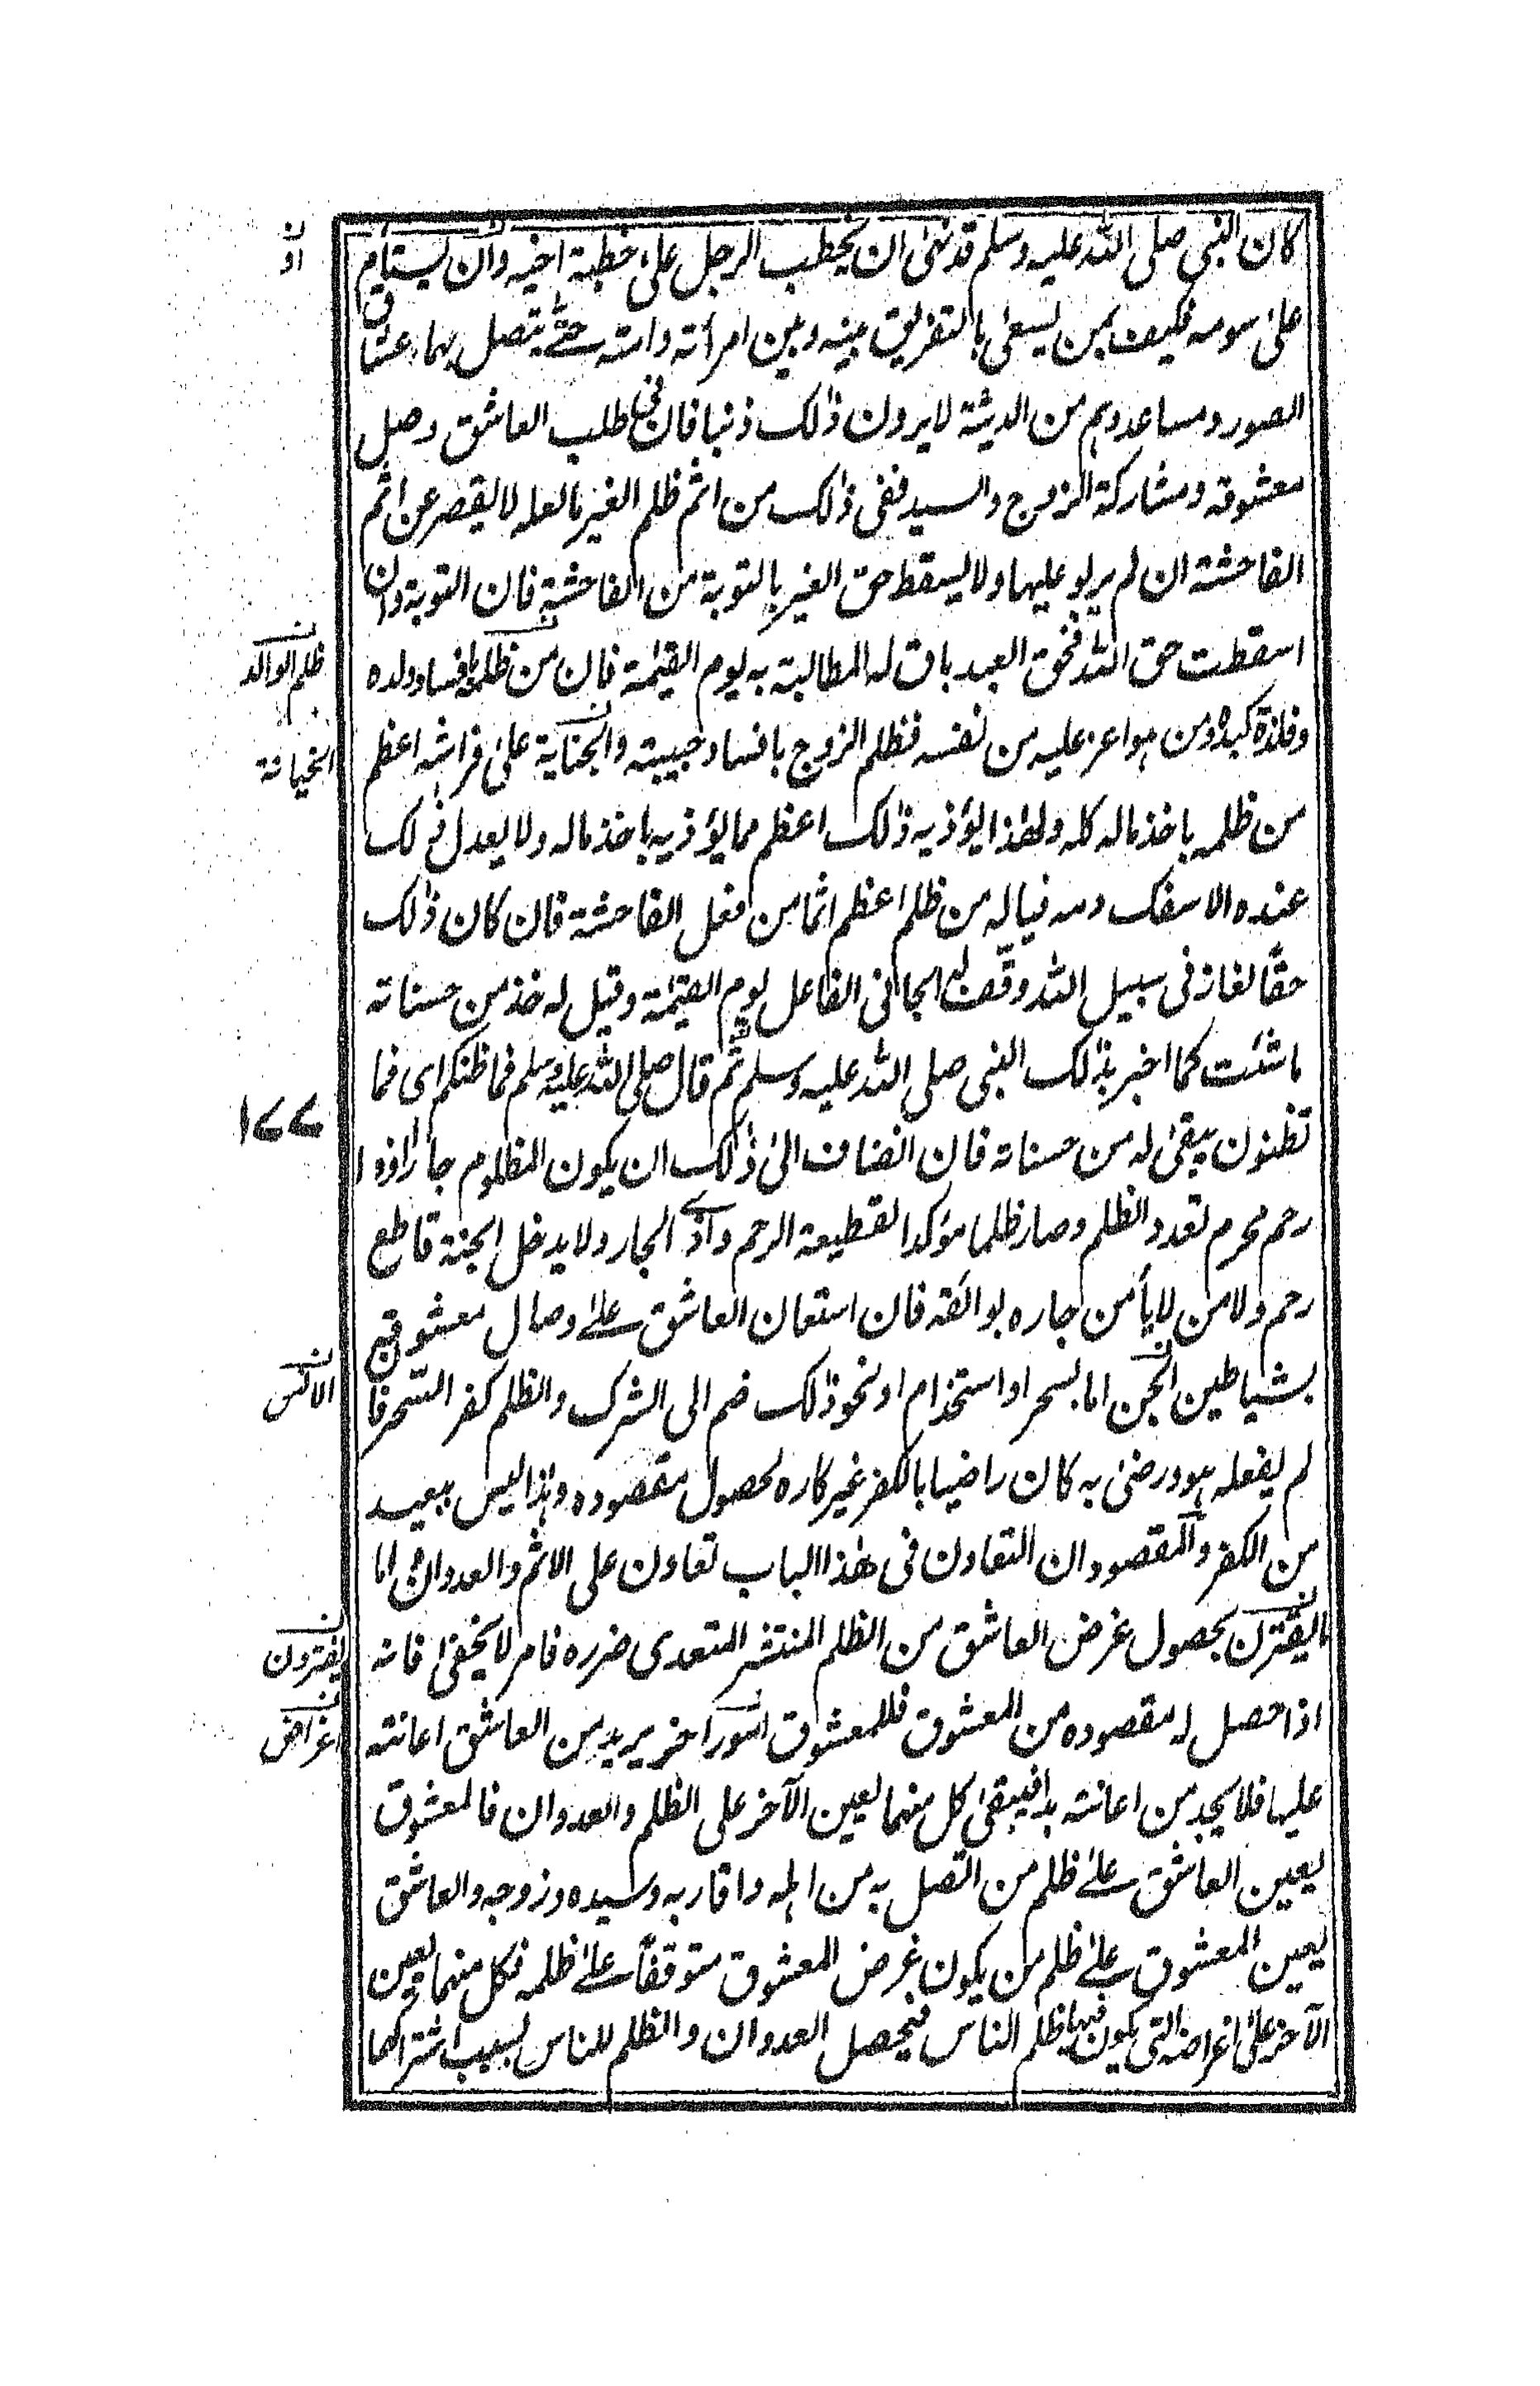 كان النبي صلى الله عليه وسلم قد نهى ان يخطب الرجل على خطبة اخيه وان يستام
على سومه فكيف بمن يسعى بالتفريق بينه وبين امرأته وامته حتى يتصل بهما وعشاق
الصور ومساعدوهم من الديثة لا يرون ذلك ذنبا فان في طلب العاشق وصل
معشوقه ومشاركة الزوج والسيد ففى ذلك من اثم ظلم الغير ما لعله لا يقصر عن اثم
الفاحشة ان لم يربو عليها ولا يسقط حق الغير بالتوبة من الفاحشة فان التوبة وان
اسقطت حق الله فحق العبد باق له المطالبة به يوم القيمة فان من ظلمه بافساد ولده
وفلذة كبده ومن هو اعز عليه من نفسه فظلم الزوج بافساد حبيبته والجناية على فراشه اعظم
من ظلمه باخذ ماله كله ولهذا يؤذيه ذلك اعظم مما يؤذيه باخذ ماله ولا يعدل ذلك
عنده الا سفك دمه فياله من ظلم اعظم اثما من فعل الفاحشة فان كان ذلك
حقا لغاز فى سبيل الله وقف له الجانى الفاعل يوم القيمة وقيل له خذ من حسناته
ما شئت كما اخبر بذلك النبى صلى الله عليه وسلم ثم قال صلى الله عليه وسلم فما ظنكم اى فما
تظنون يبقى له من حسناته فان انضاف الى ذلك ان يكون المظلوم جارا او ذا
رحم محرم تعدد الظلم وصار ظلما مؤكدا لقطيعة الرحم واذى الجار ولا يدخل الجنة قاطع
رحم ولا من لا يأمن جاره بوائقه فان استعان العاشق على وصال معشوقه
بشياطين الجن اما بسحر او استخدام او نحو ذلك ضم الى الشرك والظلم كفر السحر فان
لم يفعله هو ورضى به كان راضيا بالكفر غير كاره لحصول مقصوده وهذا ليس ببعيد
من الكفر والمقصود ان التعاون فى هذا الباب تعاون على الاثم والعدوان واما
ما يقترن بحصول غرض العاشق من الظلم المنتشر المتعدى ضرره فامر لا يخفى فانه
اذا حصل له مقصوده من المعشوق فللمعشوق امور اخر يريد من العاشق اعانته
عليها فلا يجد من اعانته بدا فيبقى كل منهما يعين الآخر على الظلم والعدوان فالمعشوق
يعين العاشق على ظلم من اتصل به من اهله واقاربه وسيده وزوجه والعاشق
يعين المعشوق على ظلم من يكون غرض المعشوق متوقفا على ظلمه فكل منهما يعين
الآخر على اغراضه التى يكون فيها ظلم الناس فيحصل العدوان والظلم للناس بسبب اشتراكهما
او
ظلم الوالد
الخيانة
١٧٧
الانس
يقترون
اغراض